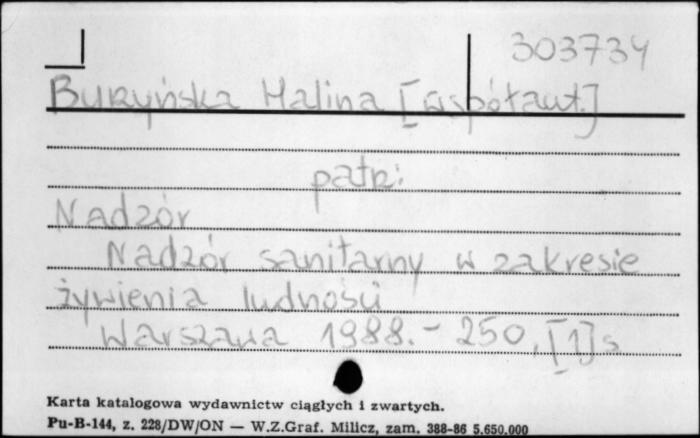 303734
Buryńska Halina [współaut.]
patrz:
Nadzór
Nadzór sanitarny w zakresie
żywienia ludności
Warszawa 1988. - 250, [1] s
Karta katalogowa wydawnictw ciągłych i zwartych.
Pu-B-144, z. 228/DW/ON — W.Z.Graf. Milicz, zam. 388-86 5.650.000